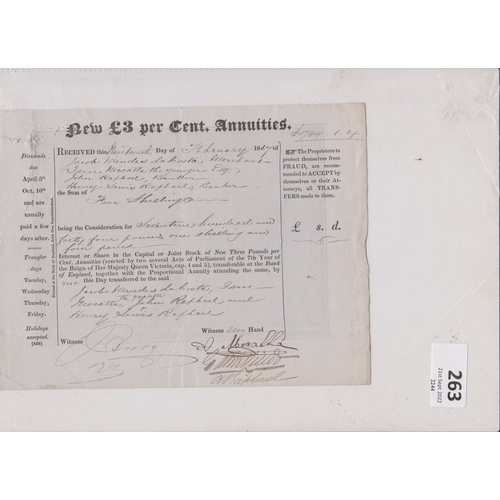 New £3 per Cent. Annuities.
£1744. 1. 4
Dividends
due
April 5th
Oct. 10th
and are
usually
paid a few
days after.
Transfer
days
Tuesday
Wednesday
Thursday,
Friday.
Holidays
excepted.
RECEIVED this Nineteenth Day of February 18 of
Jacob Mendes da Costa, Merchant
Isaac Mocatta the younger Esq.
John Raphael Banker
Henry Lewis Raphael, Banker
the Sum of Five Shillings
being the Consideration for Seventeen hundred and
forty four pounds one shilling and
four pence
Interest or Share in the Capital or Joint Stock of New Three Pounds per
Cent. Annuities (erected by two several Acts of Parliament of the 7th Year of
the Reign of Her Majesty Queen Victoria, cap. 4 and 5), transferable at the Bank
of England, together with the Proportional Annuity attending the same, by
this Day transferred to the said
Jacob Mendes da Costa, Isaac
Mocatta the younger, John Raphael and
Henry Lewis Raphael
Witness Hand
Witness
Mocatta
Raphael
The Proprietors to
protect themselves from
FRAUD, are recom-
mended to ACCEPT by
themselves or their At-
torneys, all TRANS-
FERS made to them.
£ s. d.
5
263
21st Sept 2022
2244